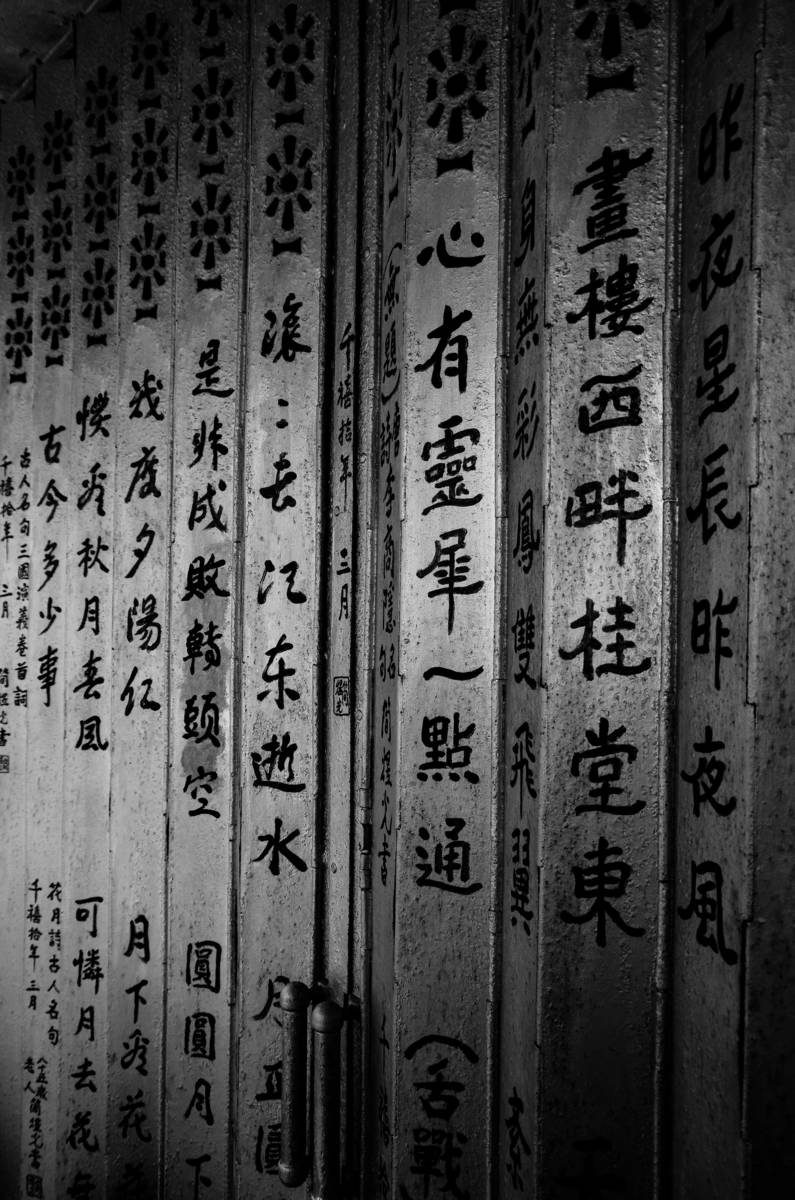 昨夜星辰昨夜風
畫樓西畔桂堂東
身無彩鳳雙飛翼
心有靈犀一點通
(無題)詩李商隱名句
千禧拾年 三月
滾〻長江東逝水
是非成敗轉頭空
幾度夕陽紅
秋月春風
古今多少事
古人名句三國演義卷首詞
千禧拾年 三月
(舌戰
圓圓月下
月下
可憐月去花
花月詩古人名句
千禧拾年 三月